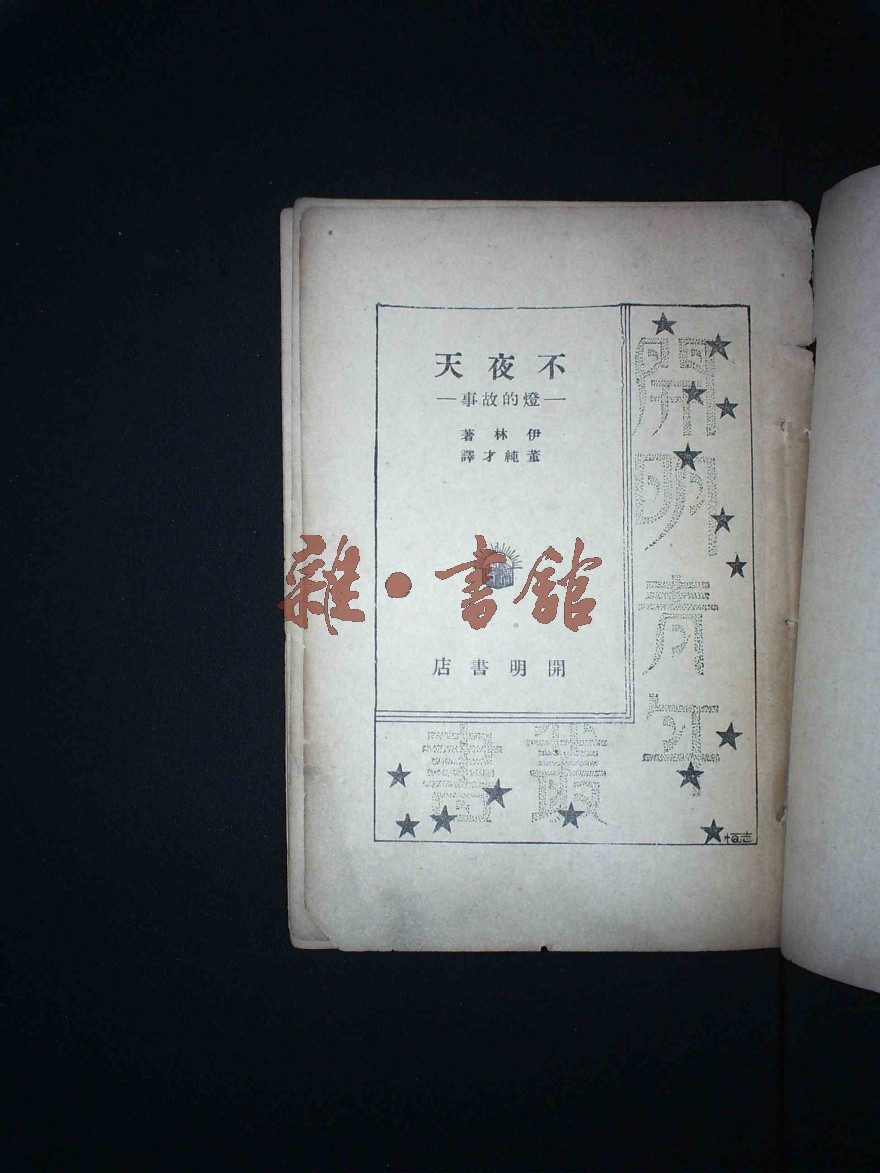 不夜天
—燈的故事—
伊林著
董純才譯
開明書店
開明青年叢書
雜·書舘